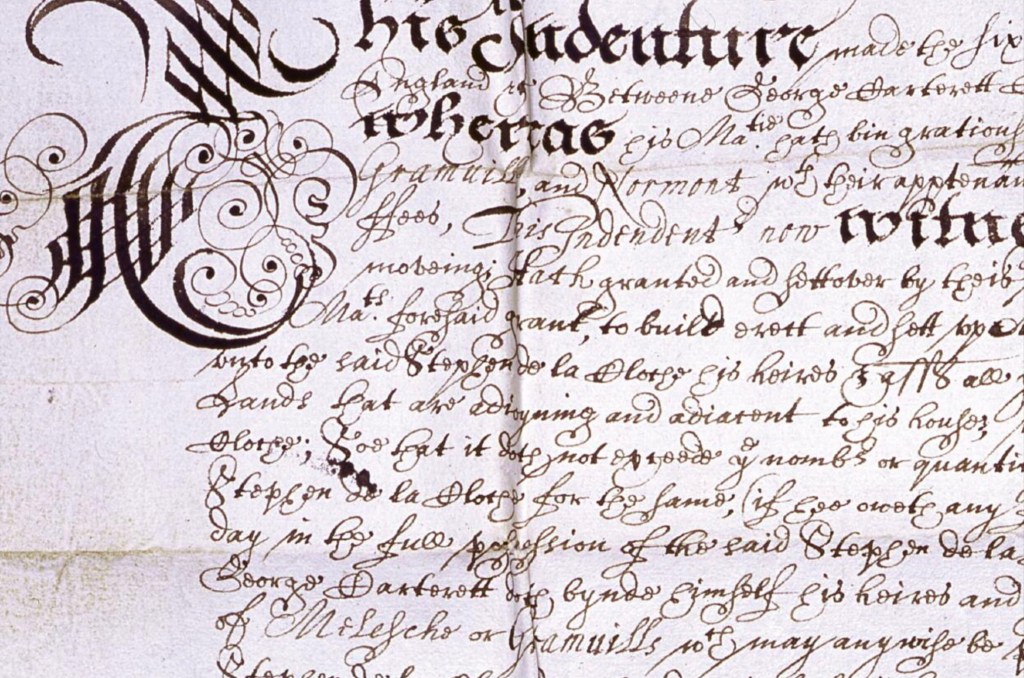 This Indenture made the six
England &c Betweene George Carterett
Whereas his Ma.tie hath bin gratious
Gramvill, and Normont wth their apptenan
ffees, This Indendent now witne
moveing, Hath granted and settover by theis
Ma.ts foresaid grant, to build erect and sett upp
unto the said Stephen de la Cloche his heires & assS all
Lands that are adioyning and adiacent to his house,
Cloche; Soe that it doth not exceede ye nombr or quanti
Stephen de la Cloche for the same, (if hee oweth any
day in the full possession of the said Stephen de la
George Carterett doth bynde himself his heires and
of Melesche or Gramvills wth may anywise be
Stephen de la